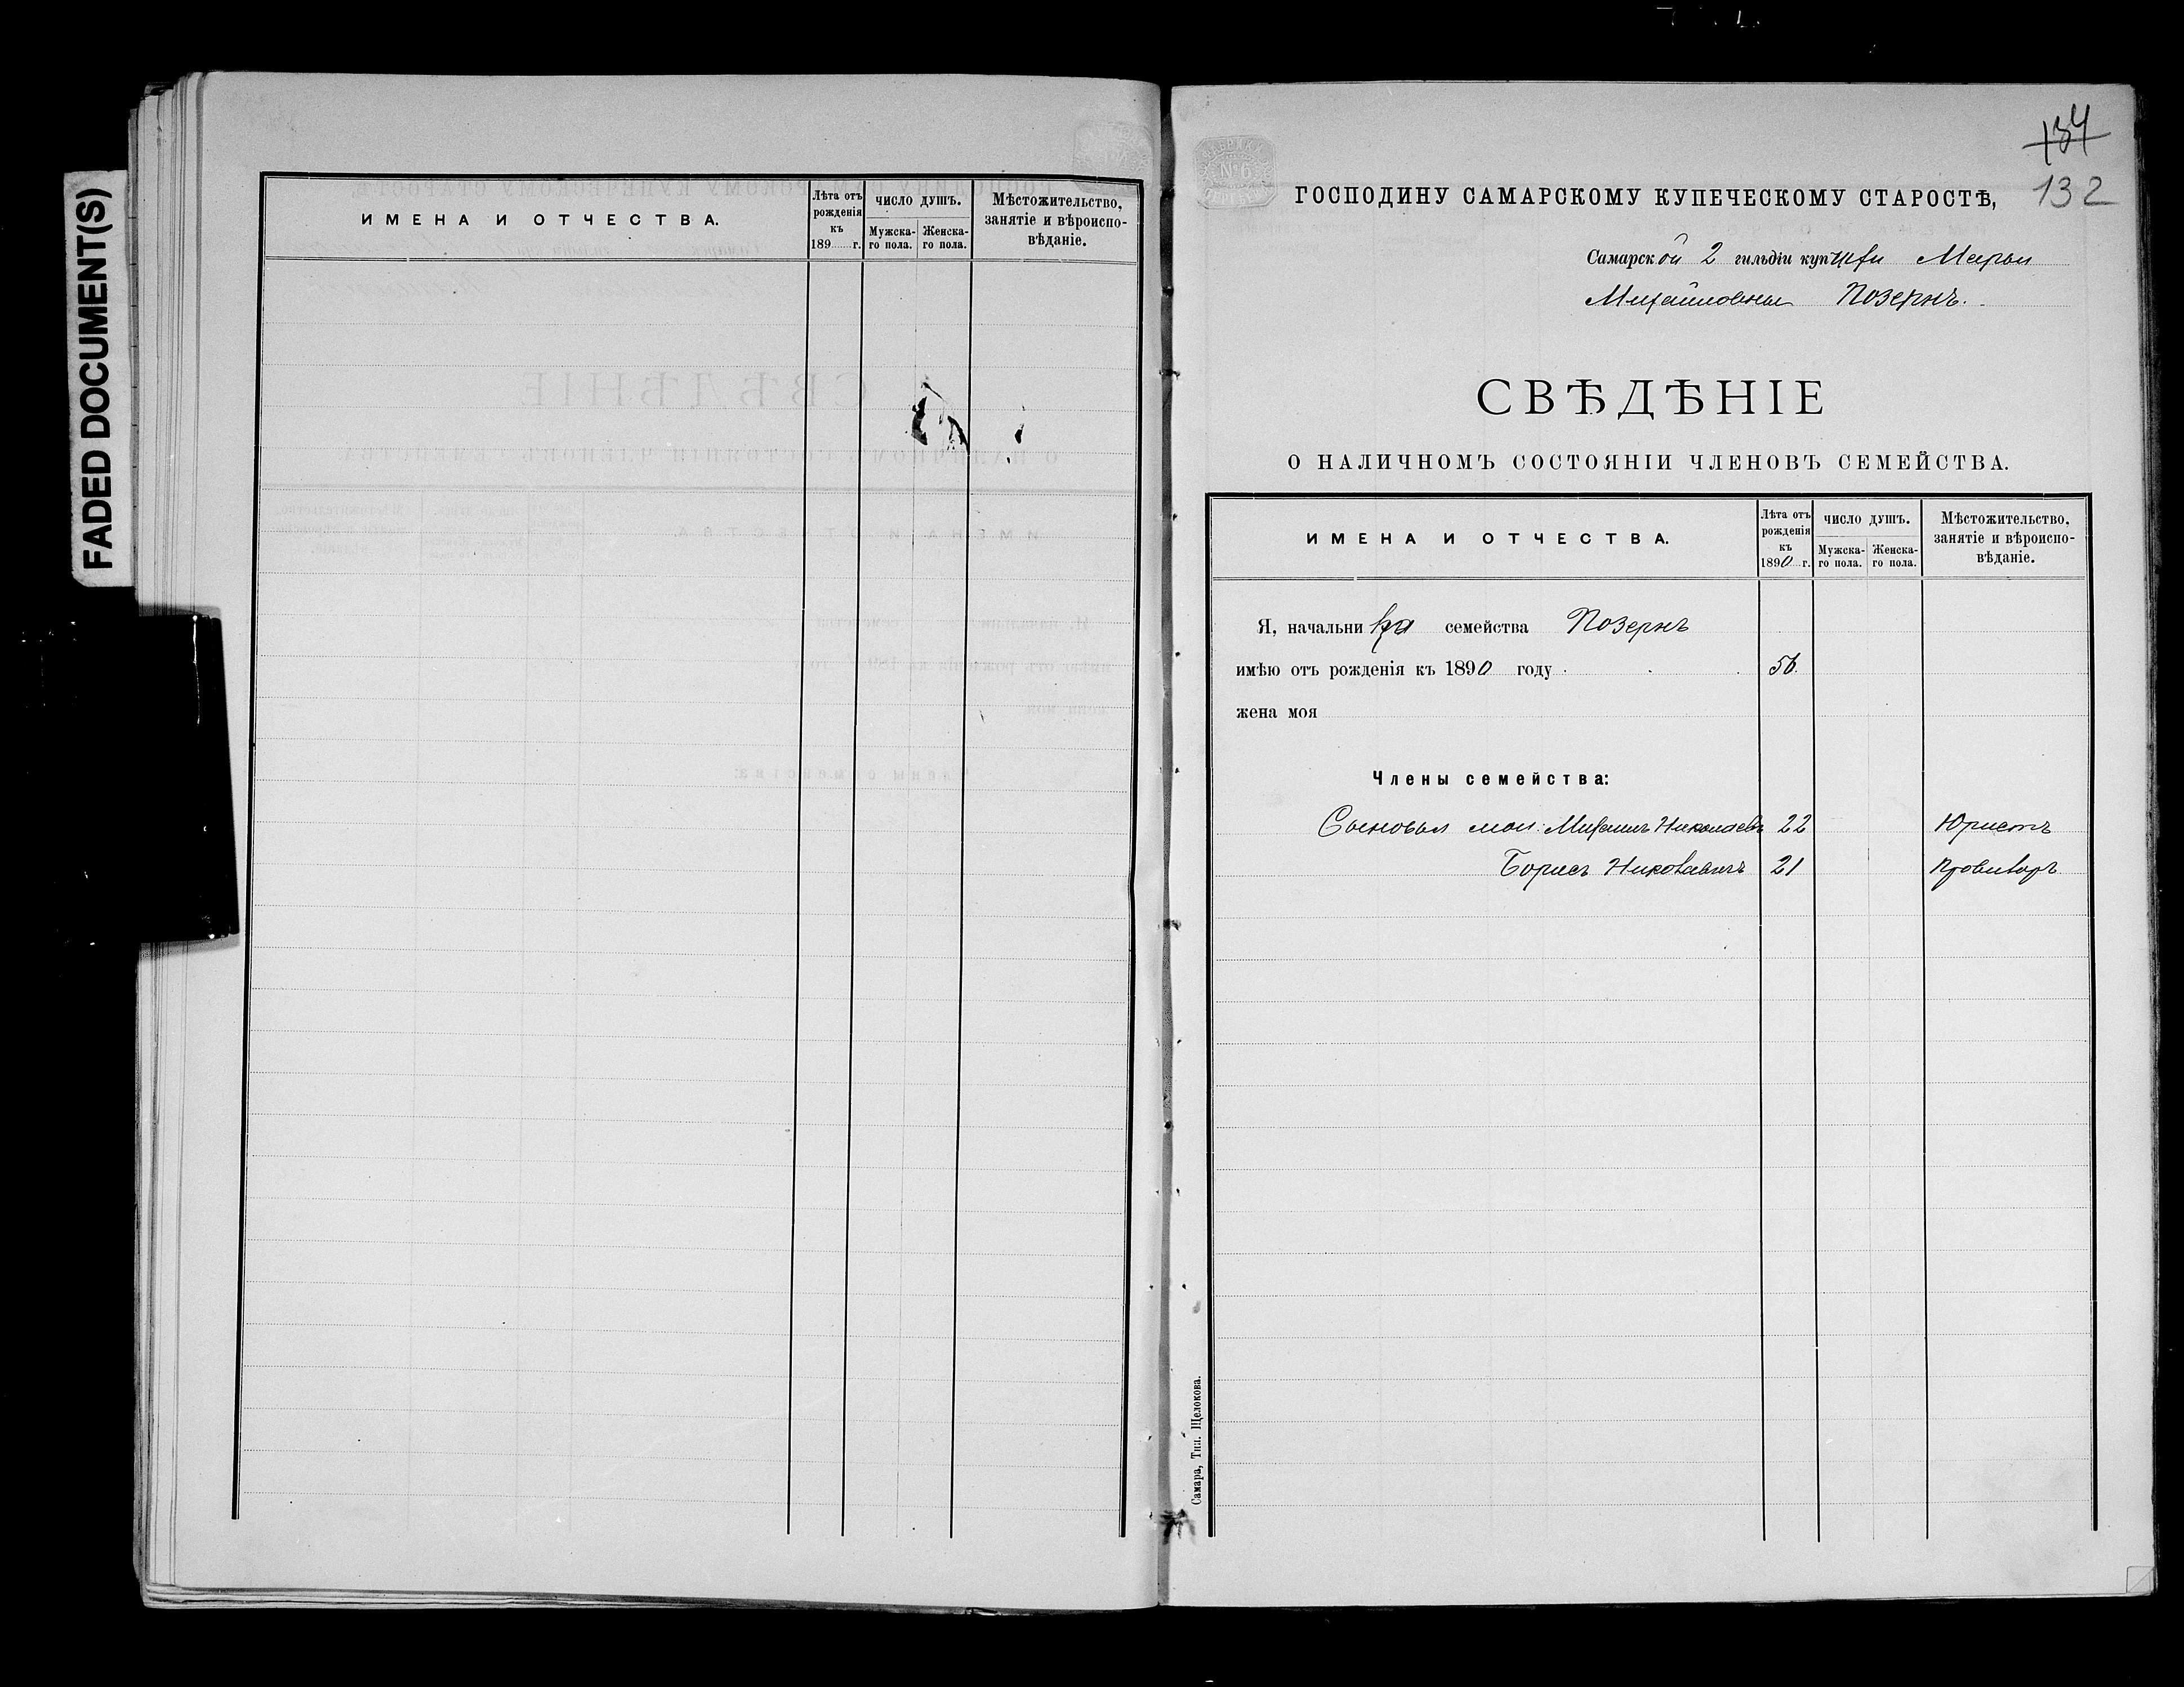 FADED DOCUMENT(S)
ИМЕНА И ОТЧЕСТВА.
Лѣта отъ рожденія къ 189 г.
ЧИСЛО ДУШЪ.
Мужска-го пола.
Женска-го пола.
Мѣстожительство, занятіе и вѣроиспо-вѣданіе.
134
132
№6
ГОСПОДИНУ САМАРСКОМУ КУПЕЧЕСКОМУ СТАРОСТѢ,
Самарской 2 гильдіи купчихи Марьи
Михайловны Позернъ.
СВѢДѢНІЕ
О НАЛИЧНОМЪ СОСТОЯНІИ ЧЛЕНОВЪ СЕМЕЙСТВА.
ИМЕНА И ОТЧЕСТВА.
Лѣта отъ рожденія къ 1890 г.
ЧИСЛО ДУШЪ.
Мужска-го пола.
Женска-го пола.
Мѣстожительство, занятіе и вѣроиспо-вѣданіе.
Я, начальница семейства Позернъ
имѣю отъ рожденія къ 1890 году 56.
жена моя
Члены семейства:
Сыновья мои: Михаилъ Николаевъ 22 Юристъ
Борисъ Николаевичъ 21 Провизоръ
Самара, Тип. Щелокова.